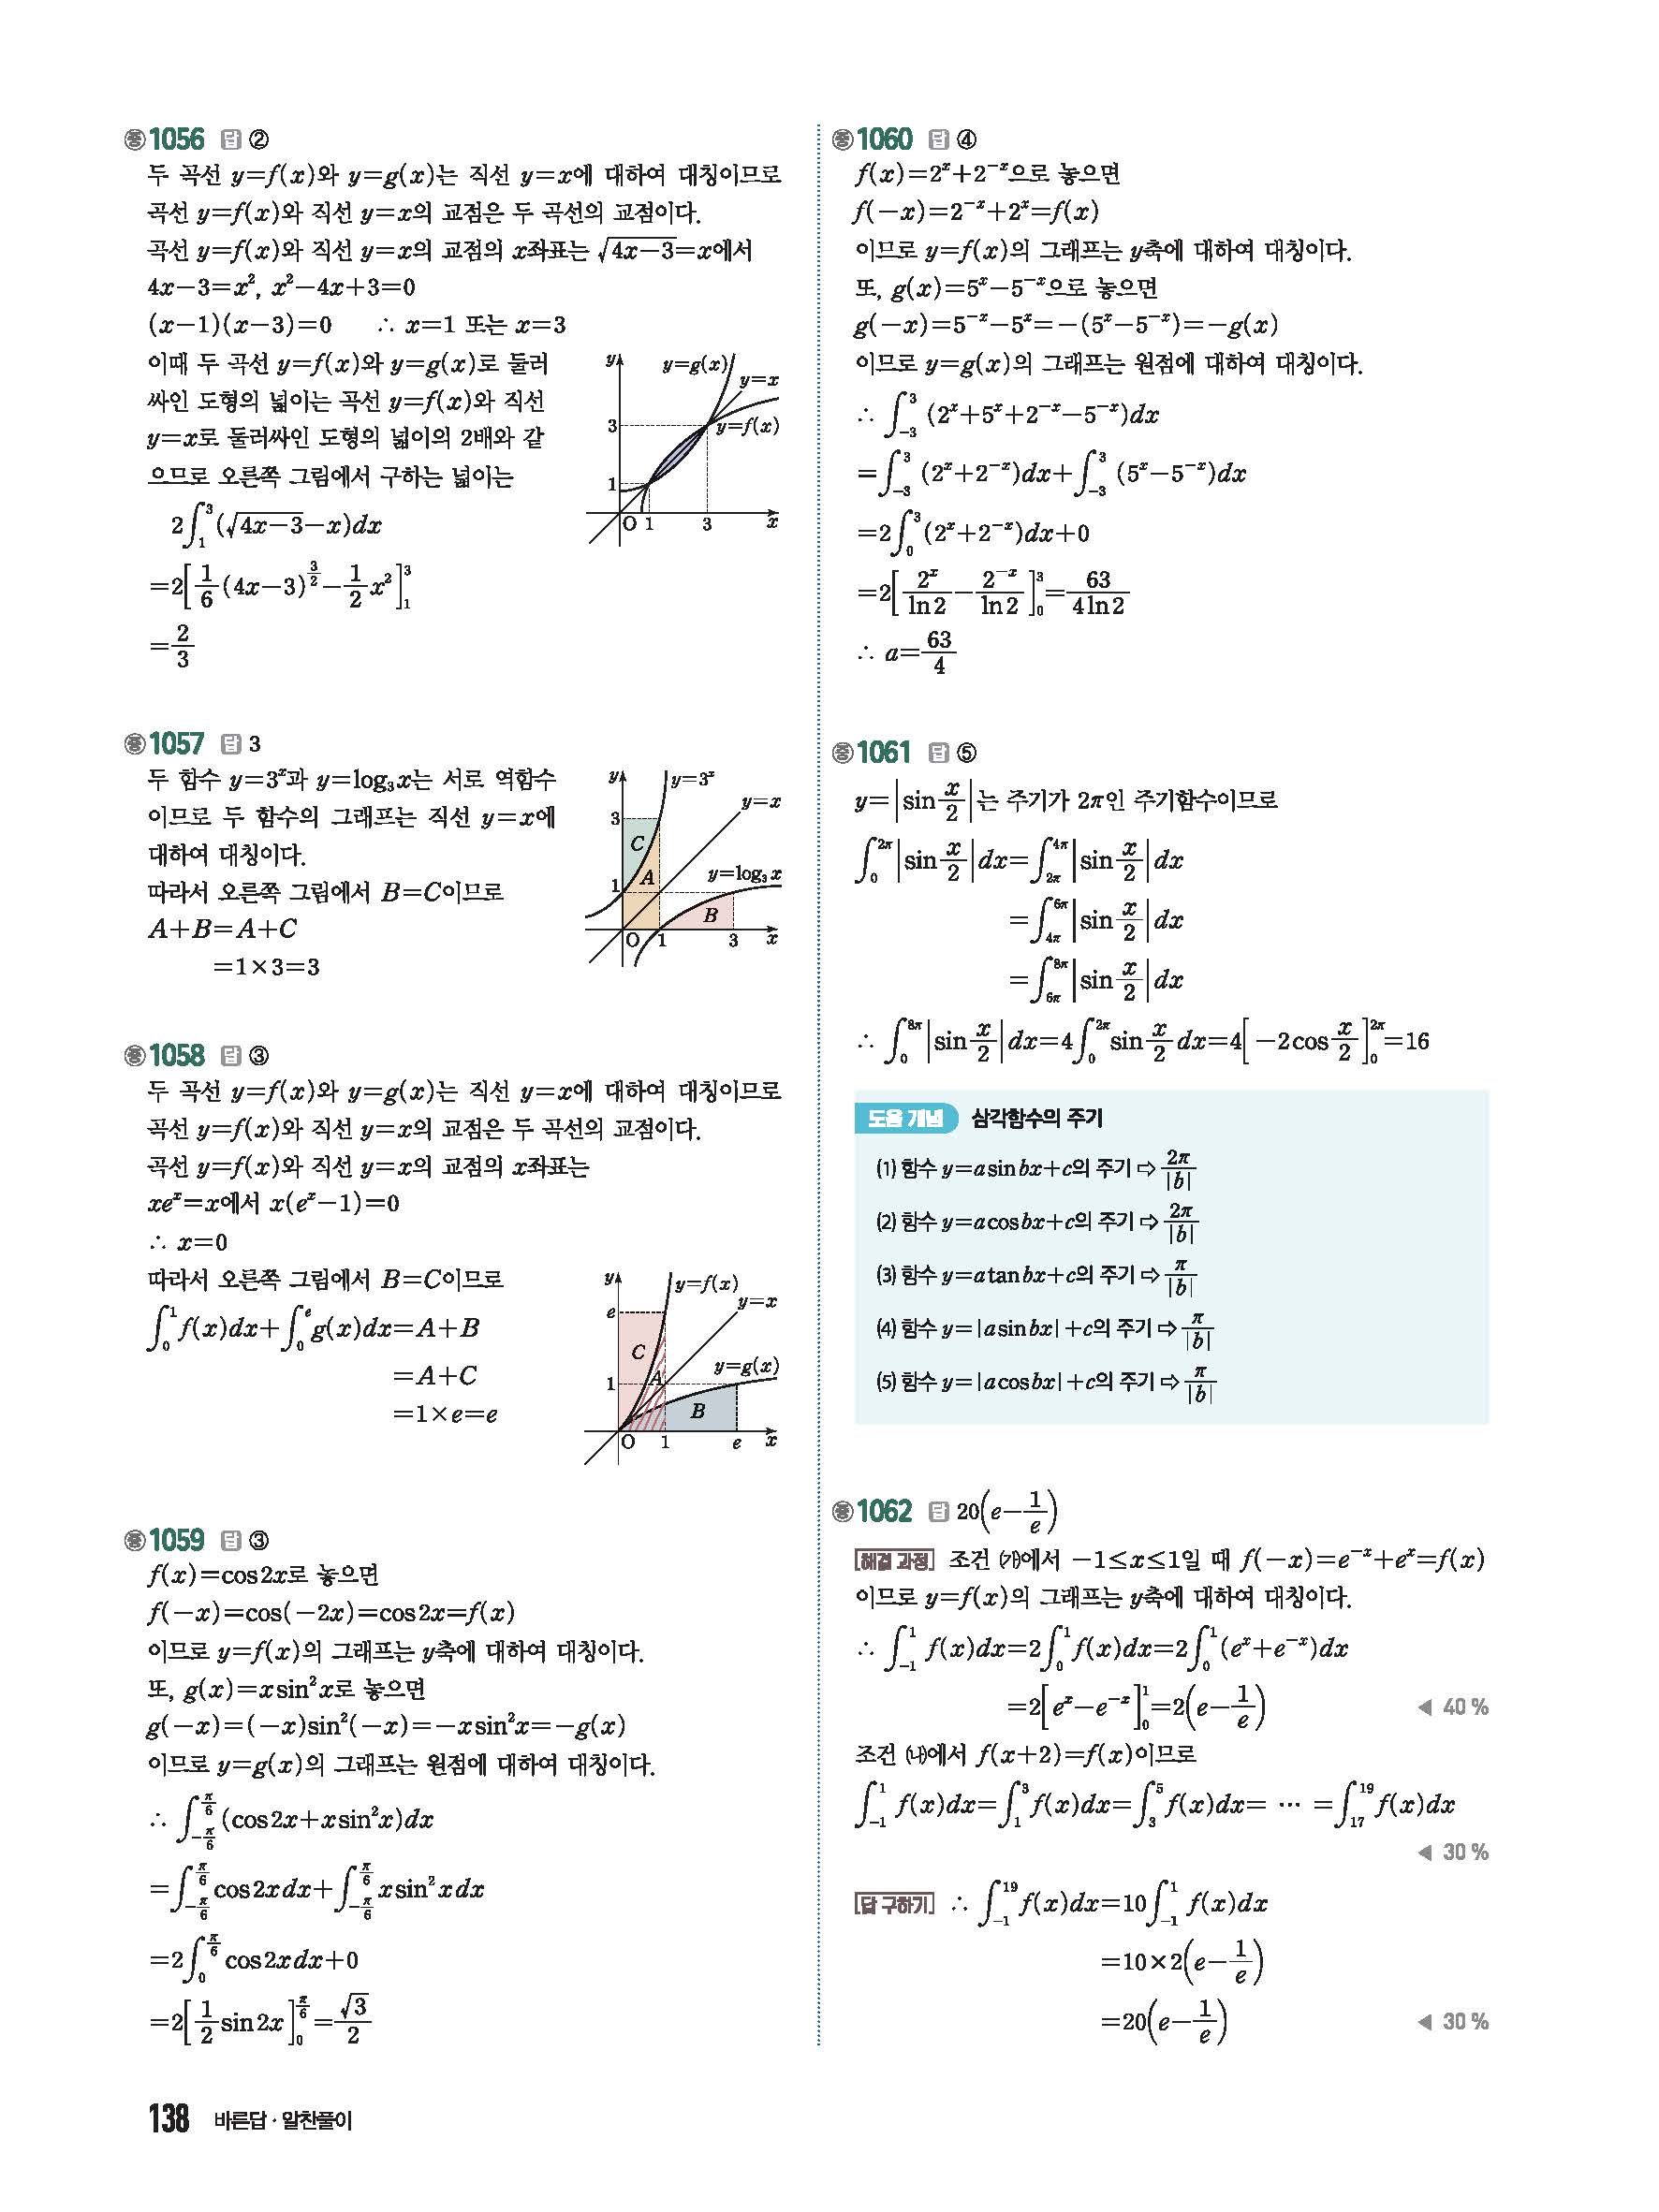 중 1056 답 ②
두 곡선 y=f(x)와 y=g(x)는 직선 y=x에 대하여 대칭이므로
곡선 y=f(x)와 직선 y=x의 교점은 두 곡선의 교점이다.
곡선 y=f(x)와 직선 y=x의 교점의 x좌표는 √(4x-3)=x에서
4x-3=x², x²-4x+3=0
(x-1)(x-3)=0 ∴ x=1 또는 x=3
이때 두 곡선 y=f(x)와 y=g(x)로 둘러
싸인 도형의 넓이는 곡선 y=f(x)와 직선
y=x로 둘러싸인 도형의 넓이의 2배와 같
으므로 오른쪽 그림에서 구하는 넓이는
2∫₁³(√(4x-3)-x)dx
=2[1/6(4x-3)^(3/2)-1/2x²]₁³
=2/3
y y=g(x) y=x
3 y=f(x)
1
O 1 3 x
중 1057 답 3
두 함수 y=3ˣ과 y=log₃x는 서로 역함수
이므로 두 함수의 그래프는 직선 y=x에
대하여 대칭이다.
따라서 오른쪽 그림에서 B=C이므로
A+B=A+C
=1×3=3
y y=3ˣ
y=x
3
C
1 A y=log₃x
B
O 1 3 x
중 1058 답 ③
두 곡선 y=f(x)와 y=g(x)는 직선 y=x에 대하여 대칭이므로
곡선 y=f(x)와 직선 y=x의 교점은 두 곡선의 교점이다.
곡선 y=f(x)와 직선 y=x의 교점의 x좌표는
xeˣ=x에서 x(eˣ-1)=0
∴ x=0
따라서 오른쪽 그림에서 B=C이므로
∫₀¹f(x)dx+∫₀ᵉg(x)dx=A+B
=A+C
=1×e=e
y y=f(x)
e y=x
C
1 A y=g(x)
B
O 1 e x
중 1059 답 ③
f(x)=cos2x로 놓으면
f(-x)=cos(-2x)=cos2x=f(x)
이므로 y=f(x)의 그래프는 y축에 대하여 대칭이다.
또, g(x)=xsin²x로 놓으면
g(-x)=(-x)sin²(-x)=-xsin²x=-g(x)
이므로 y=g(x)의 그래프는 원점에 대하여 대칭이다.
∴ ∫_{-π/6}^{π/6}(cos2x+xsin²x)dx
=∫_{-π/6}^{π/6}cos2xdx+∫_{-π/6}^{π/6}xsin²xdx
=2∫_{0}^{π/6}cos2xdx+0
=2[1/2sin2x]_{0}^{π/6}=√3/2
중 1060 답 ④
f(x)=2ˣ+2⁻ˣ으로 놓으면
f(-x)=2⁻ˣ+2ˣ=f(x)
이므로 y=f(x)의 그래프는 y축에 대하여 대칭이다.
또, g(x)=5ˣ-5⁻ˣ으로 놓으면
g(-x)=5⁻ˣ-5ˣ=-(5ˣ-5⁻ˣ)=-g(x)
이므로 y=g(x)의 그래프는 원점에 대하여 대칭이다.
∴ ∫₋₃³(2ˣ+5ˣ+2⁻ˣ-5⁻ˣ)dx
=∫₋₃³(2ˣ+2⁻ˣ)dx+∫₋₃³(5ˣ-5⁻ˣ)dx
=2∫₀³(2ˣ+2⁻ˣ)dx+0
=2[2ˣ/ln2-2⁻ˣ/ln2]₀³=63/4ln2
∴ a=63/4
중 1061 답 ⑤
y=|sin x/2|는 주기가 2π인 주기함수이므로
∫_{0}^{2π}|sin x/2|dx=∫_{2π}^{4π}|sin x/2|dx
=∫_{4π}^{6π}|sin x/2|dx
=∫_{6π}^{8π}|sin x/2|dx
∴ ∫_{0}^{8π}|sin x/2|dx=4∫_{0}^{2π}sin x/2 dx=4[-2cos x/2]_{0}^{2π}=16
도움 개념 삼각함수의 주기
(1) 함수 y=asinbx+c의 주기 ⇨ 2π/|b|
(2) 함수 y=acosbx+c의 주기 ⇨ 2π/|b|
(3) 함수 y=atanbx+c의 주기 ⇨ π/|b|
(4) 함수 y=|asinbx|+c의 주기 ⇨ π/|b|
(5) 함수 y=|acosbx|+c의 주기 ⇨ π/|b|
중 1062 답 20(e-1/e)
[해결 과정] 조건 ㈎에서 -1≤x≤1일 때 f(-x)=e⁻ˣ+eˣ=f(x)
이므로 y=f(x)의 그래프는 y축에 대하여 대칭이다.
∴ ∫₋₁¹f(x)dx=2∫₀¹f(x)dx=2∫₀¹(eˣ+e⁻ˣ)dx
=2[eˣ-e⁻ˣ]₀¹=2(e-1/e) ◀ 40 %
조건 ㈏에서 f(x+2)=f(x)이므로
∫₋₁¹f(x)dx=∫₁³f(x)dx=∫₃⁵f(x)dx= ⋯ =∫₁₇¹⁹f(x)dx
◀ 30 %
[답 구하기] ∴ ∫₋₁¹⁹f(x)dx=10∫₋₁¹f(x)dx
=10×2(e-1/e)
=20(e-1/e) ◀ 30 %
138 바른답·알찬풀이